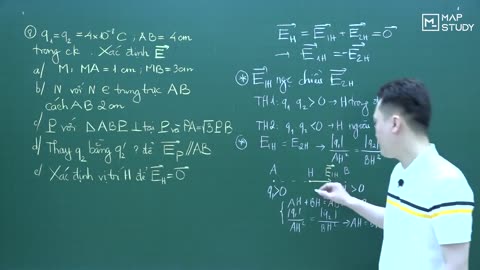 ② q₁ = q₂ = 4×10⁻⁸ C ; AB = 4cm
trong ck. Xác định E⃗
a/ M, MA = 1cm; MB = 3cm
b/ N với N ∈ trung trực AB
cách AB 2cm
c/ P với ΔABP ⊥ tại P và PA = √3 PB
d/ Thay q₂ bằng q₂' ? để E⃗P // AB
e/ Xác định vị trí H để E⃗H = 0⃗
E⃗H = E⃗1H + E⃗2H = 0⃗
→ E⃗1H = -E⃗2H
* E⃗1H ngc chiều E⃗2H
TH1: q₁ q₂ > 0 → H trong
TH2: q₁ q₂ < 0 → H ngoài
* E1H = E2H → |q₁|/AH² = |q₂|/BH²
A H E⃗1H B
q₁>0 > 0
AH + BH = AB
|q₁|/AH² = |q₂|/BH² → AH = BH
MAP
STUDY